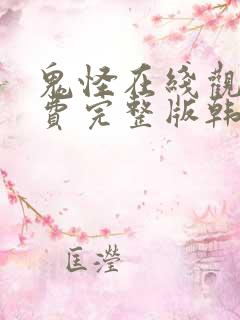 鬼怪在线觀
費完整版韩
匡瀅